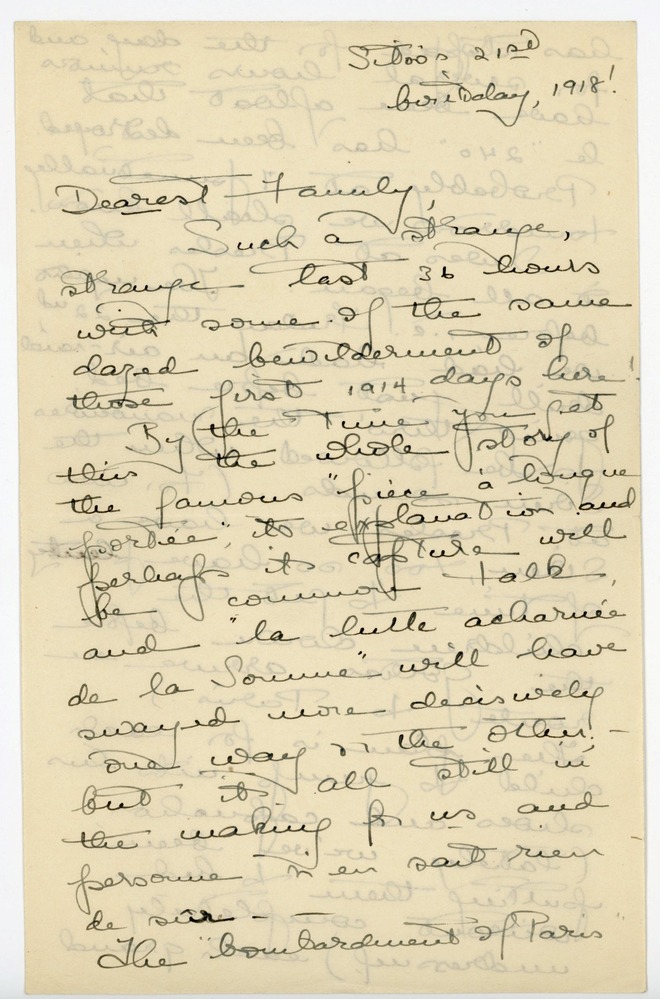 21st
birthday, 1918!
Dearest Family,
Such a strange,
strange last 36 hours
with some of the same
dazed bewilderment of
those first 1914 days here!
By the time you get
this the whole story of
the famous "pièce à longue
portée", its explanation and
perhaps its capture will
be common talk,
and "la lutte acharnée
de la Somme" will have
swayed more decisively
one way or the other, –
but it's all still in
the making for us and
personne n'en sait rien –
de sûr –
The "bombardment of Paris"